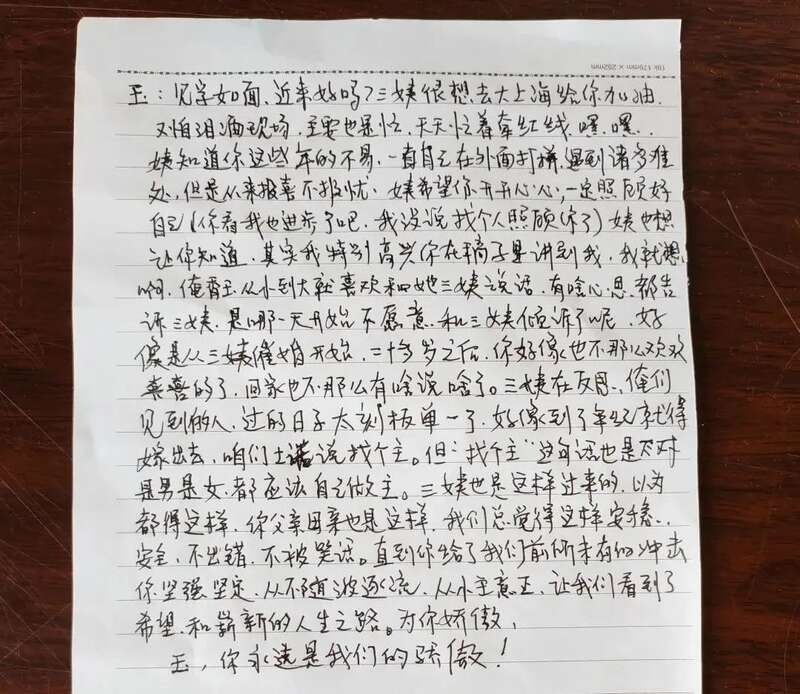 16k 179mm × 252mm
玉：见字如面、近来好吗？三姨很想去大上海给你加油.
又怕泪洒现场，主要也是忙，天天忙着牵红线，嘿，嘿、.
姨知道你这些年的不易，一直自己在外面打拼，遇到诸多难
处，但是从来报喜不报忧，姨希望你开开心心，一定照顾好
自己（你看我也进步了吧，我没说找个人照顾你了）姨也想
让你知道，其实我特别高兴你在稿子里讲到我，我就想
啊，俺玉从小到大就喜欢和她三姨说话，有啥心思都告
诉三姨，是哪一天开始不愿意和三姨倾诉了呢，好
像是从三姨催婚开始，二十多岁之后，你好像也不那么欢欢
喜喜的了，回家也不那么有啥说啥了。三姨在反思，俺们
见到的人，过的日子太刻板单一了，好像到了年纪就得
嫁出去，咱们土话说找个主。但“找个主”这句话也是不对
是男是女，都应该自己做主。三姨也是这样过来的，以为
都得这样，你父亲母亲也是这样，我们总觉得这样安稳、.
安全，不出错，不被笑话。直到你给了我们前所未有的冲击
你坚强坚定，从不随波逐流，从小主意正，让我们看到了
希望，和崭新的人生之路。为你骄傲，
玉，你永远是我们的骄傲！